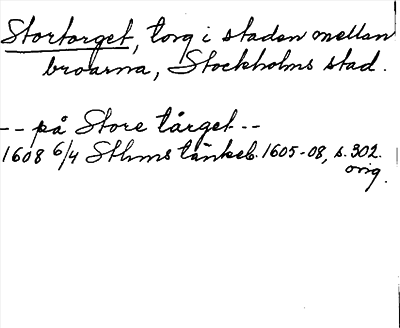 Stortorget, torg i staden mellan
broarna, Stockholms stad.
-- på Store tårget --
1608 6/4 Sthms tänkeb. 1605-08, s. 302.
orig.